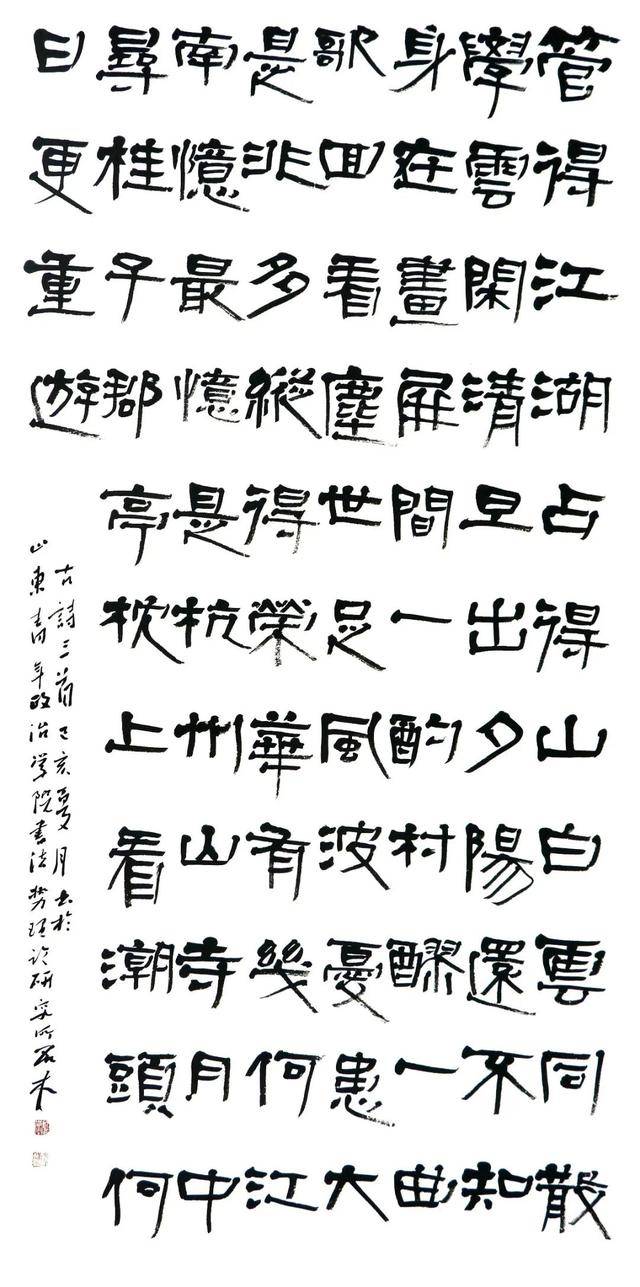 管得江湖占得山白雲同散
學雲閑清旦出夕陽還不知
身在畫屏間一酌村醪一曲
歌回看塵世足風波憂患大
是非多縱得榮華有幾何江
南憶最憶是杭州山寺月中
尋桂子郡亭枕上看潮頭何
日更重遊
古詩三首己亥夏月書於
山東青年政治學院書法理論研究所